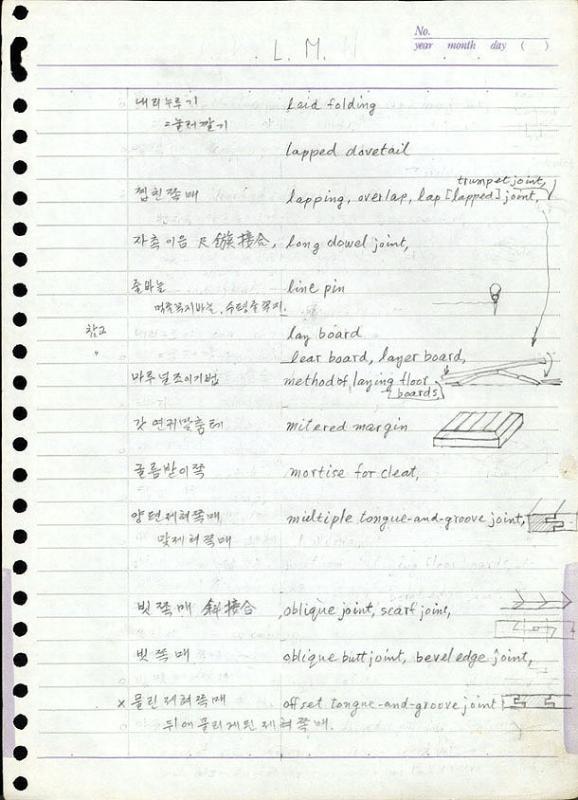 No.
year month day ( )
L. M.
내리누르기 laid folding
=눌러깔기
lapped dovetail
trumpet joint,
접힌쪽매 lapping, overlap, lap [lapped] joint,
자촉이음 尺鏃接合, long dowel joint,
줄바늘 line pin
먹줄꼭지바늘, 수평줄꼭지.
참고 lay board
〃 lear board, layer board,
마루널조이기법 method of laying floor
[boards]
갓연귀맞춤테 mitered margin
굴름받이쪽 mortise for cleat,
양면제혀쪽매 multiple tongue-and-groove joint,
맞제혀쪽매
빗쪽매 斜接合 oblique joint, scarf joint,
빗쪽매 oblique butt joint, bevel edge joint,
× 물린제혀쪽매 offset tongue-and-groove joint
뒤에물리게된제혀쪽매.